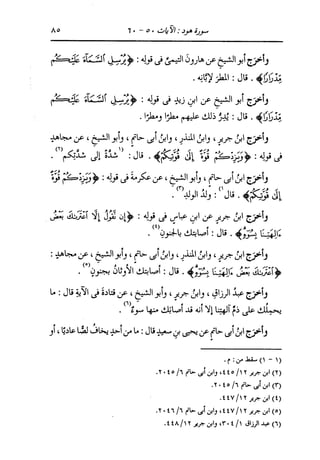 سورة هود : الآيات ٥٠ - ٦٠ ٨٥
وأخرج أبو الشيخ عن هارون التيمىّ فى قوله : ﴿يُرْسِلِ السَّمَاءَ عَلَيْكُم
مِّدْرَارًا﴾ . قال : المطرَ لإبّانِه .
وأخرج أبو الشيخ عن ابن زيد فى قوله : ﴿يُرْسِلِ السَّمَاءَ عَلَيْكُم
مِّدْرَارًا﴾ . قال : يُدِرُّ ذلك عليهم مطرًا ومطرًا .
وأخرج ابنُ جرير ، وابنُ المنذر ، وابنُ أبى حاتم ، وأبو الشيخ ، عن مجاهد
فى قوله : ﴿وَيَزِدْكُمْ قُوَّةً إِلَى قُوَّتِكُمْ﴾ . قال : (١شدَّةً إلى شدَّتِكم(٢) .
وأخرج ابنُ أبى حاتم ، وأبو الشيخ ، عن عكرمة فى قوله : ﴿وَيَزِدْكُمْ قُوَّةً
إِلَى قُوَّتِكُمْ﴾ . قال١) : ولدَ الولدِ(٣) .
وأخرج ابنُ جرير عن ابن عباس فى قوله : ﴿إِن نَّقُولُ إِلَّا اعْتَرَاكَ بَعْضُ
آلِهَتِنَا بِسُوءٍ﴾ . قال : أصابتك بالجنونِ(٤) .
وأخرج ابنُ جرير ، وابنُ المنذر ، وابنُ أبى حاتم ، وأبو الشيخ ، عن مجاهد :
﴿اعْتَرَاكَ بَعْضُ آلِهَتِنَا بِسُوءٍ﴾ . قال : أصابتك الأوثانُ بجنونٍ(٥) .
وأخرج عبدُ الرزاق ، وابنُ جرير ، وأبو الشيخ ، عن قتادة فى الآية قال : ما
يحمِلُك على ذمِّ آلهتِنا إلا أنه قد أصابَك منها سوءٌ(٦) .
وأخرج ابنُ أبى حاتم عن يحيى بن سعيد قال : ما من أحدٍ يخافُ لصًّا عاديًا ، أو
(١ - ١) سقط من : م .
(٢) ابن جرير ١٢/ ٤٤٥، وابن أبى حاتم ٦/ ٢٠٤٥.
(٣) ابن أبى حاتم ٦/ ٢٠٤٥.
(٤) ابن جرير ١٢/ ٤٤٧.
(٥) ابن جرير ١٢/ ٤٤٧، وابن أبى حاتم ٦/ ٢٠٤٦.
(٦) عبد الرزاق ١/ ٣٠٤، وابن جرير ١٢/ ٤٤٨.